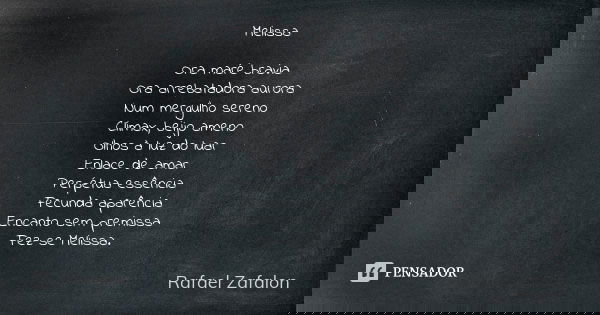 Melissa
Ora maré bravia
Ora arrebatadora aurora
Num mergulho sereno
Clímax, beijo ameno
Olhos à luz do luar
Enlace de amar
Perpétua essência
Fecunda aparência
Encanto sem premissa
Fez-se Melissa.
Rafael Zafalon
PENSADOR